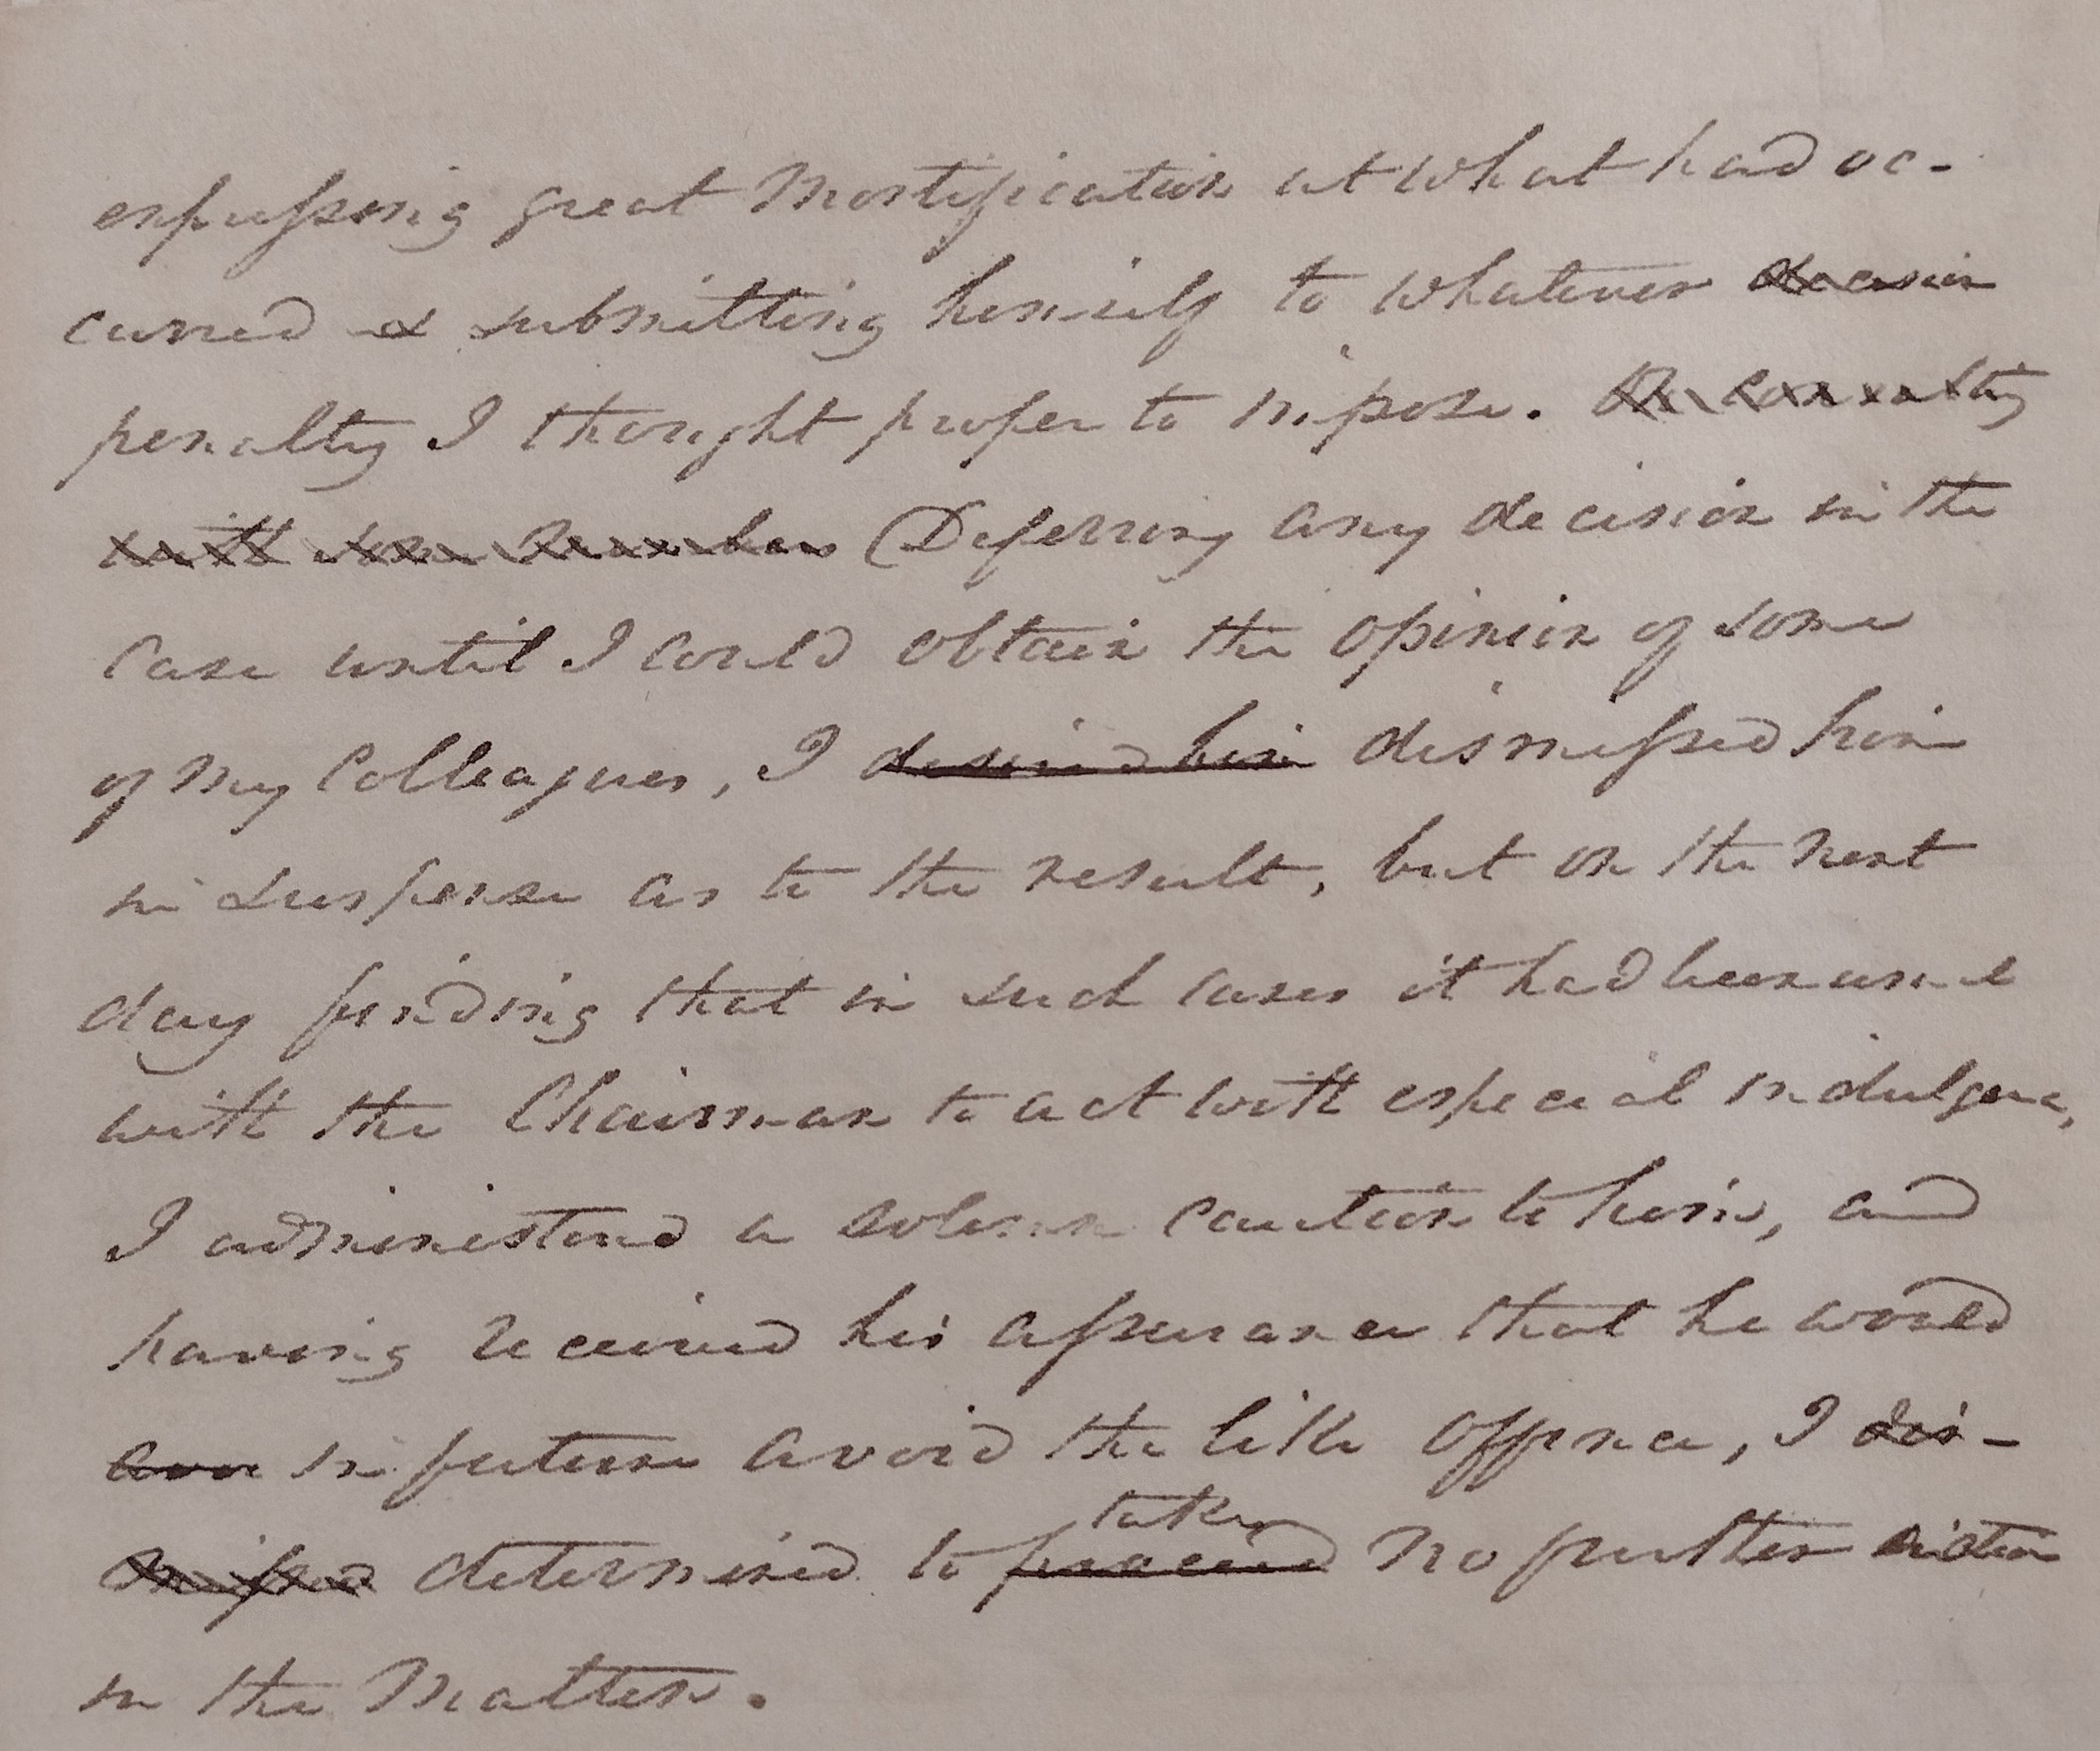 expressing great Mortification at what had oc-
curred & submitting himself to whatever decision
penalty I thought proper to impose. On Consulting
with some Members (Deferring any decision in the
Case until I could obtain the Opinion of some
of My Colleagues, I desired him dismissed him
in suspense as to the result, but on the next
day finding that in such cases it had been usual
with the Chairman to act with especial indulgence,
I administered a solemn Caution to him, and
having received his assurance that he would
in future avoid the like Offence, I dis-
missed determined to proceed take no further action
in the Matter.